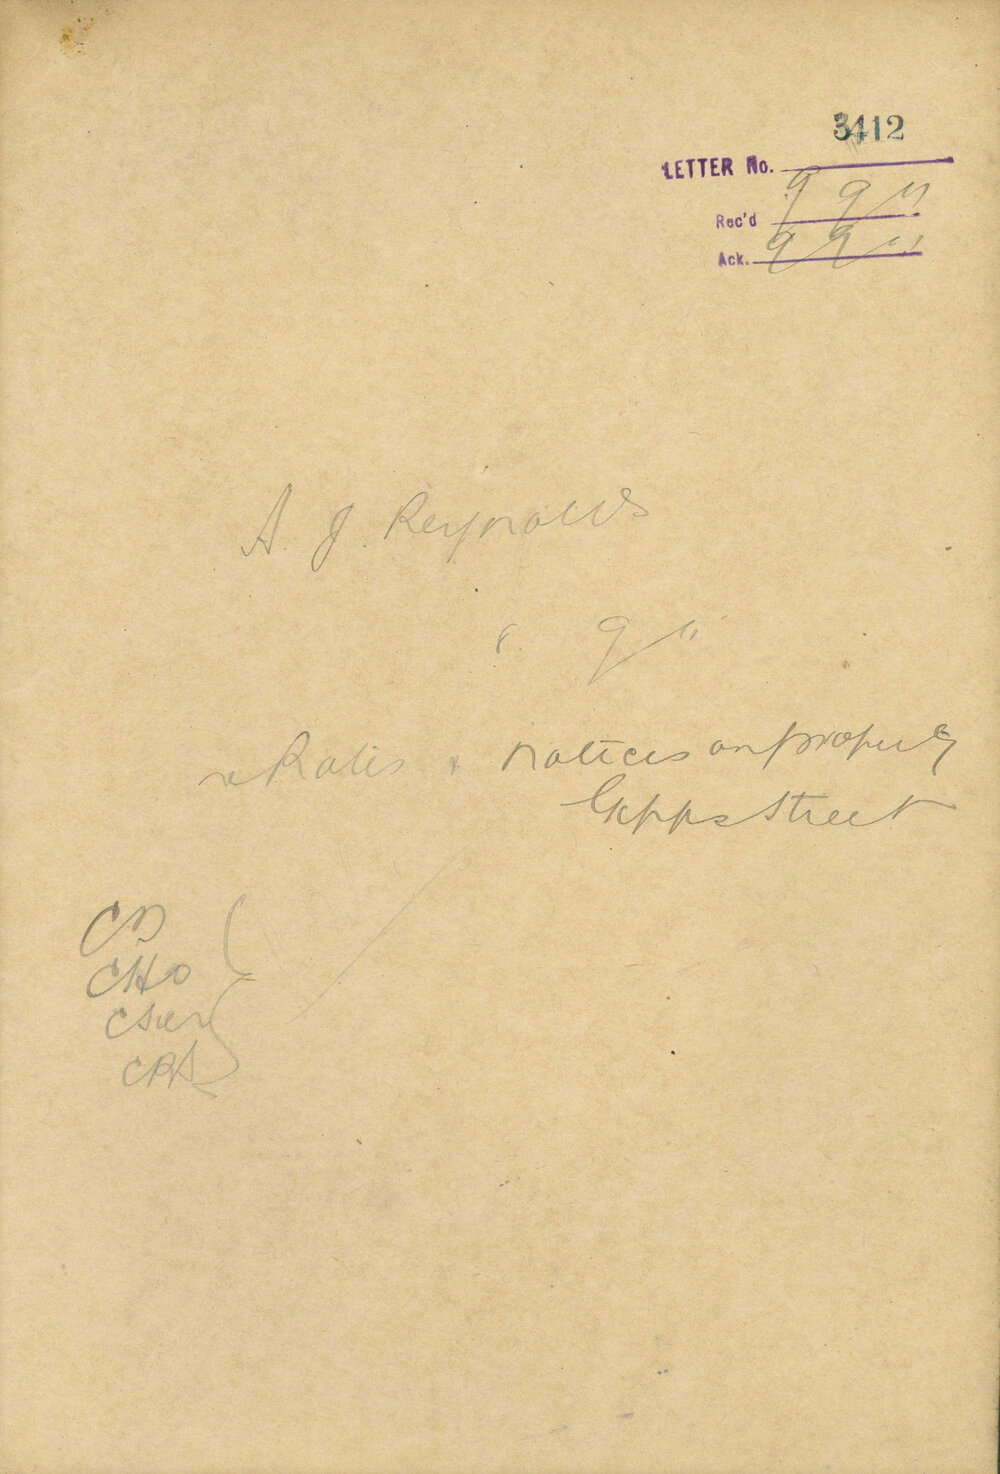 3412
LETTER No.
Rec'd 9 9 11
Ack. 9 9 11
A. J. Reynolds
8. 9 11
Rates + notices on property
Gipps Street
CB
CHO
CRA